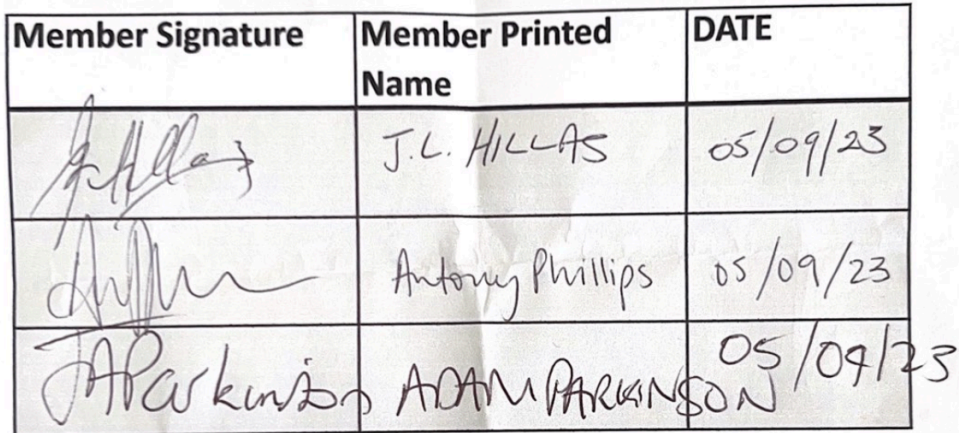 Member Signature Member Printed Name DATE
J.L. HILLAS 05/09/23
Antony Phillips 05/09/23
JAParkinson ADAM PARKINSON 05/09/23